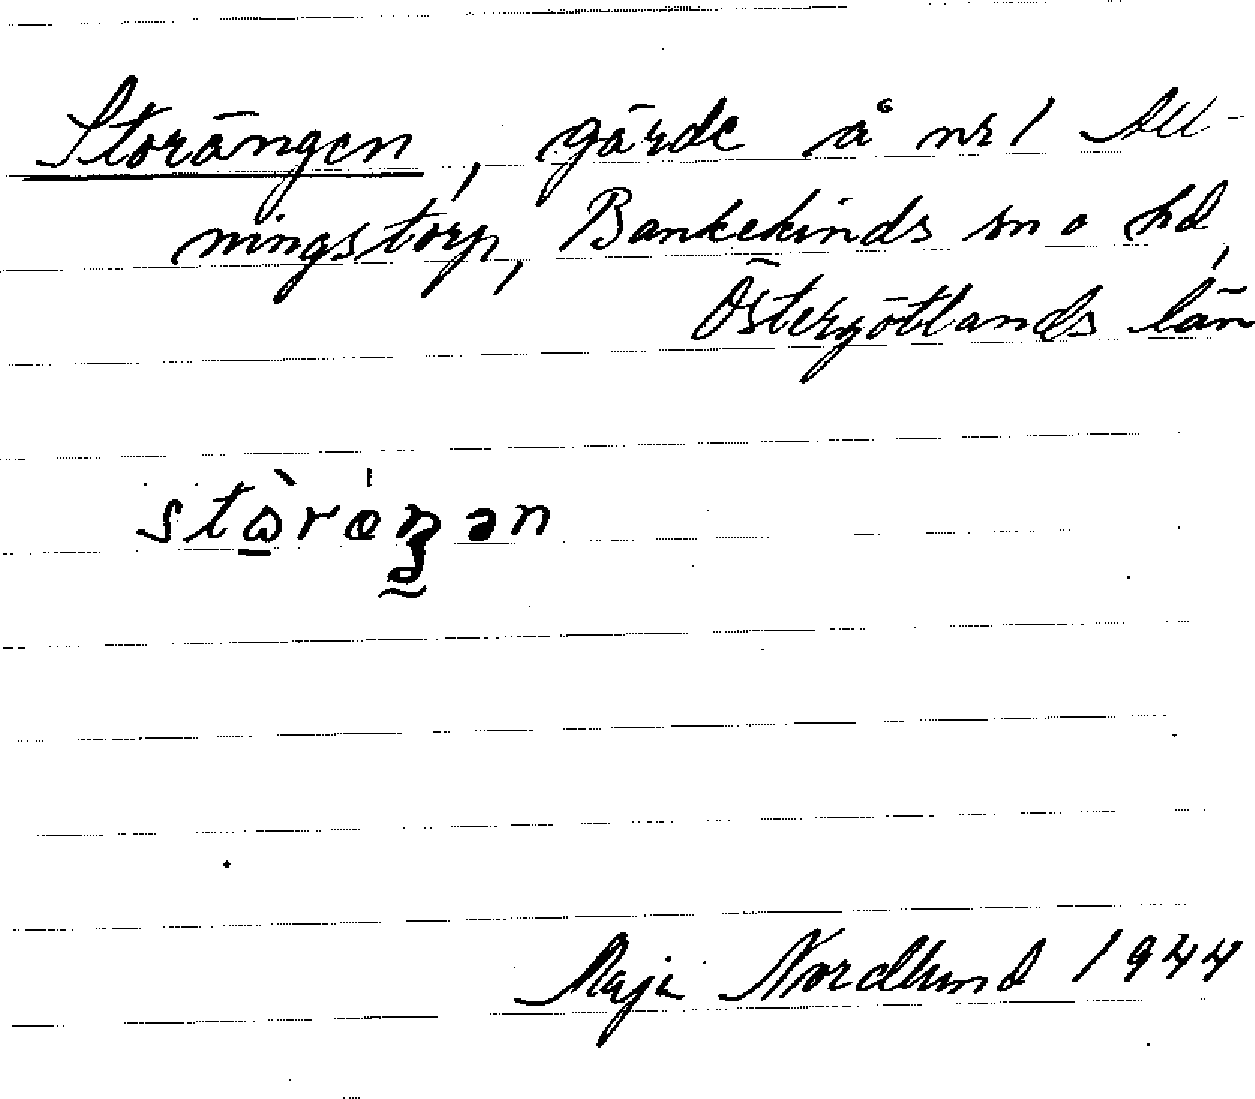 Storängen, gärde å nr 1 All-
ningstorp, Bankekinds sn o hd,
Östergötlands län
stɷ̀ràŋən
Maja Nordlund 1944